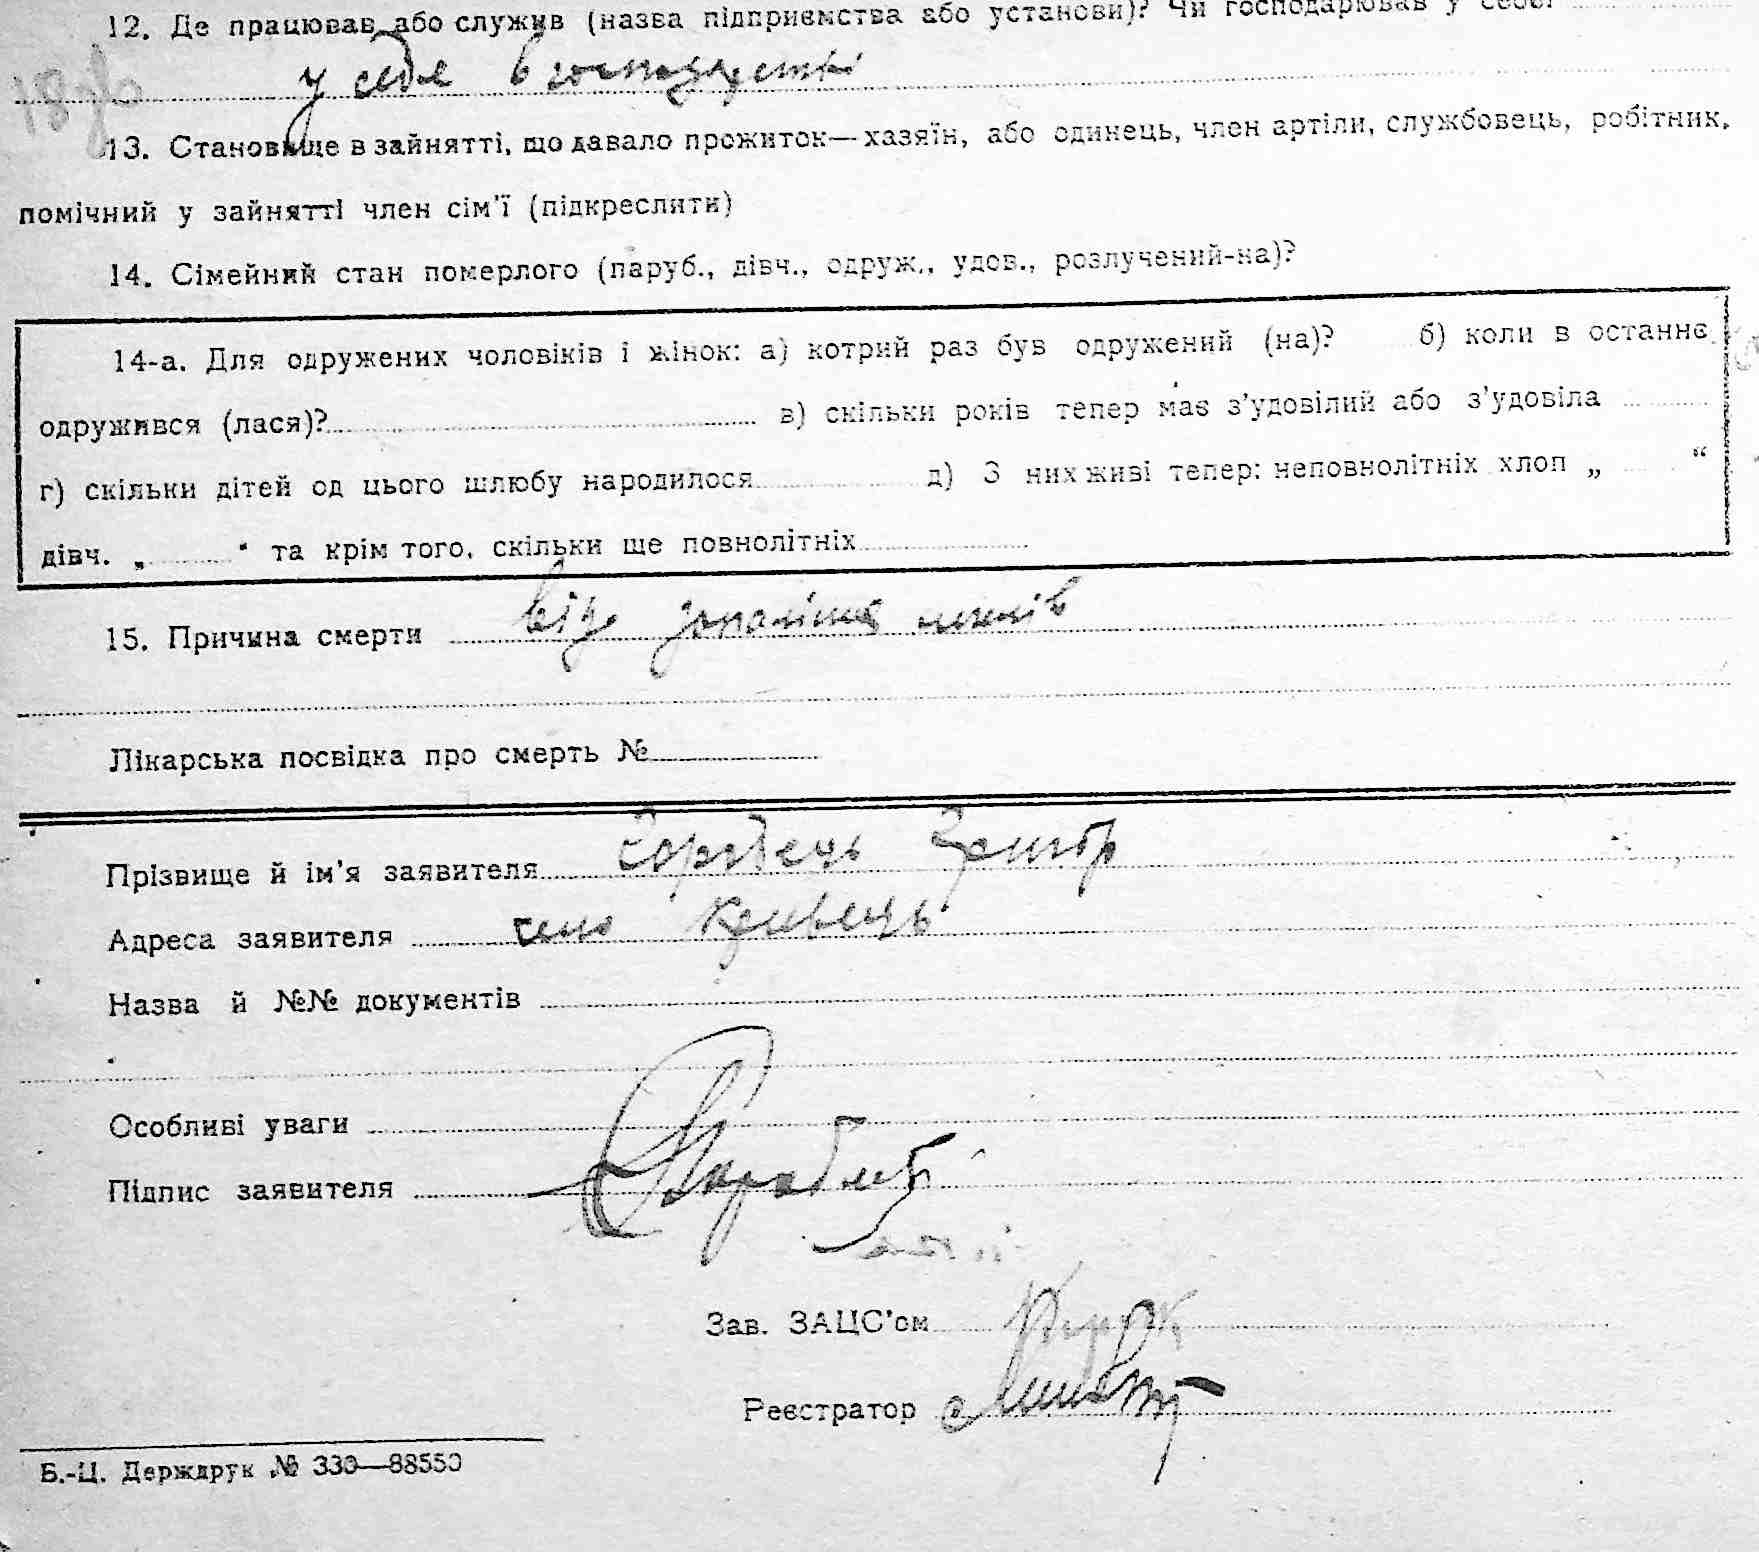 12. Де працював або служив (назва підприємства або установи)? Чи господарював у себе?
у себе в господарстві
13. Становище в зайнятті, що давало прожиток—хазяїн, або одинець, член артіли, службовець, робітник,
помічний у зайнятті член сім'ї (підкреслити)
14. Сімейний стан померлого (паруб., дівч., одруж., удов., розлучений-на)?
14-а. Для одружених чоловіків і жінок: а) котрий раз був одружений (на)? б) коли в останнє
одружився (лася)? в) скільки років тепер має з'удовілий або з'удовіла
г) скільки дітей од цього шлюбу народилося д) З них живі тепер: неповнолітніх хлоп „ “
дівч. „ “ та крім того, скільки ще повнолітніх
15. Причина смерти від запаління
Лікарська посвідка про смерть №
Прізвище й ім'я заявителя
Адреса заявителя село Кривець
Назва й №№ документів
Особливі уваги
Підпис заявителя
Зав. ЗАЦС'ом
Реєстратор
Б.-Ц. Держдрук № 330—88550